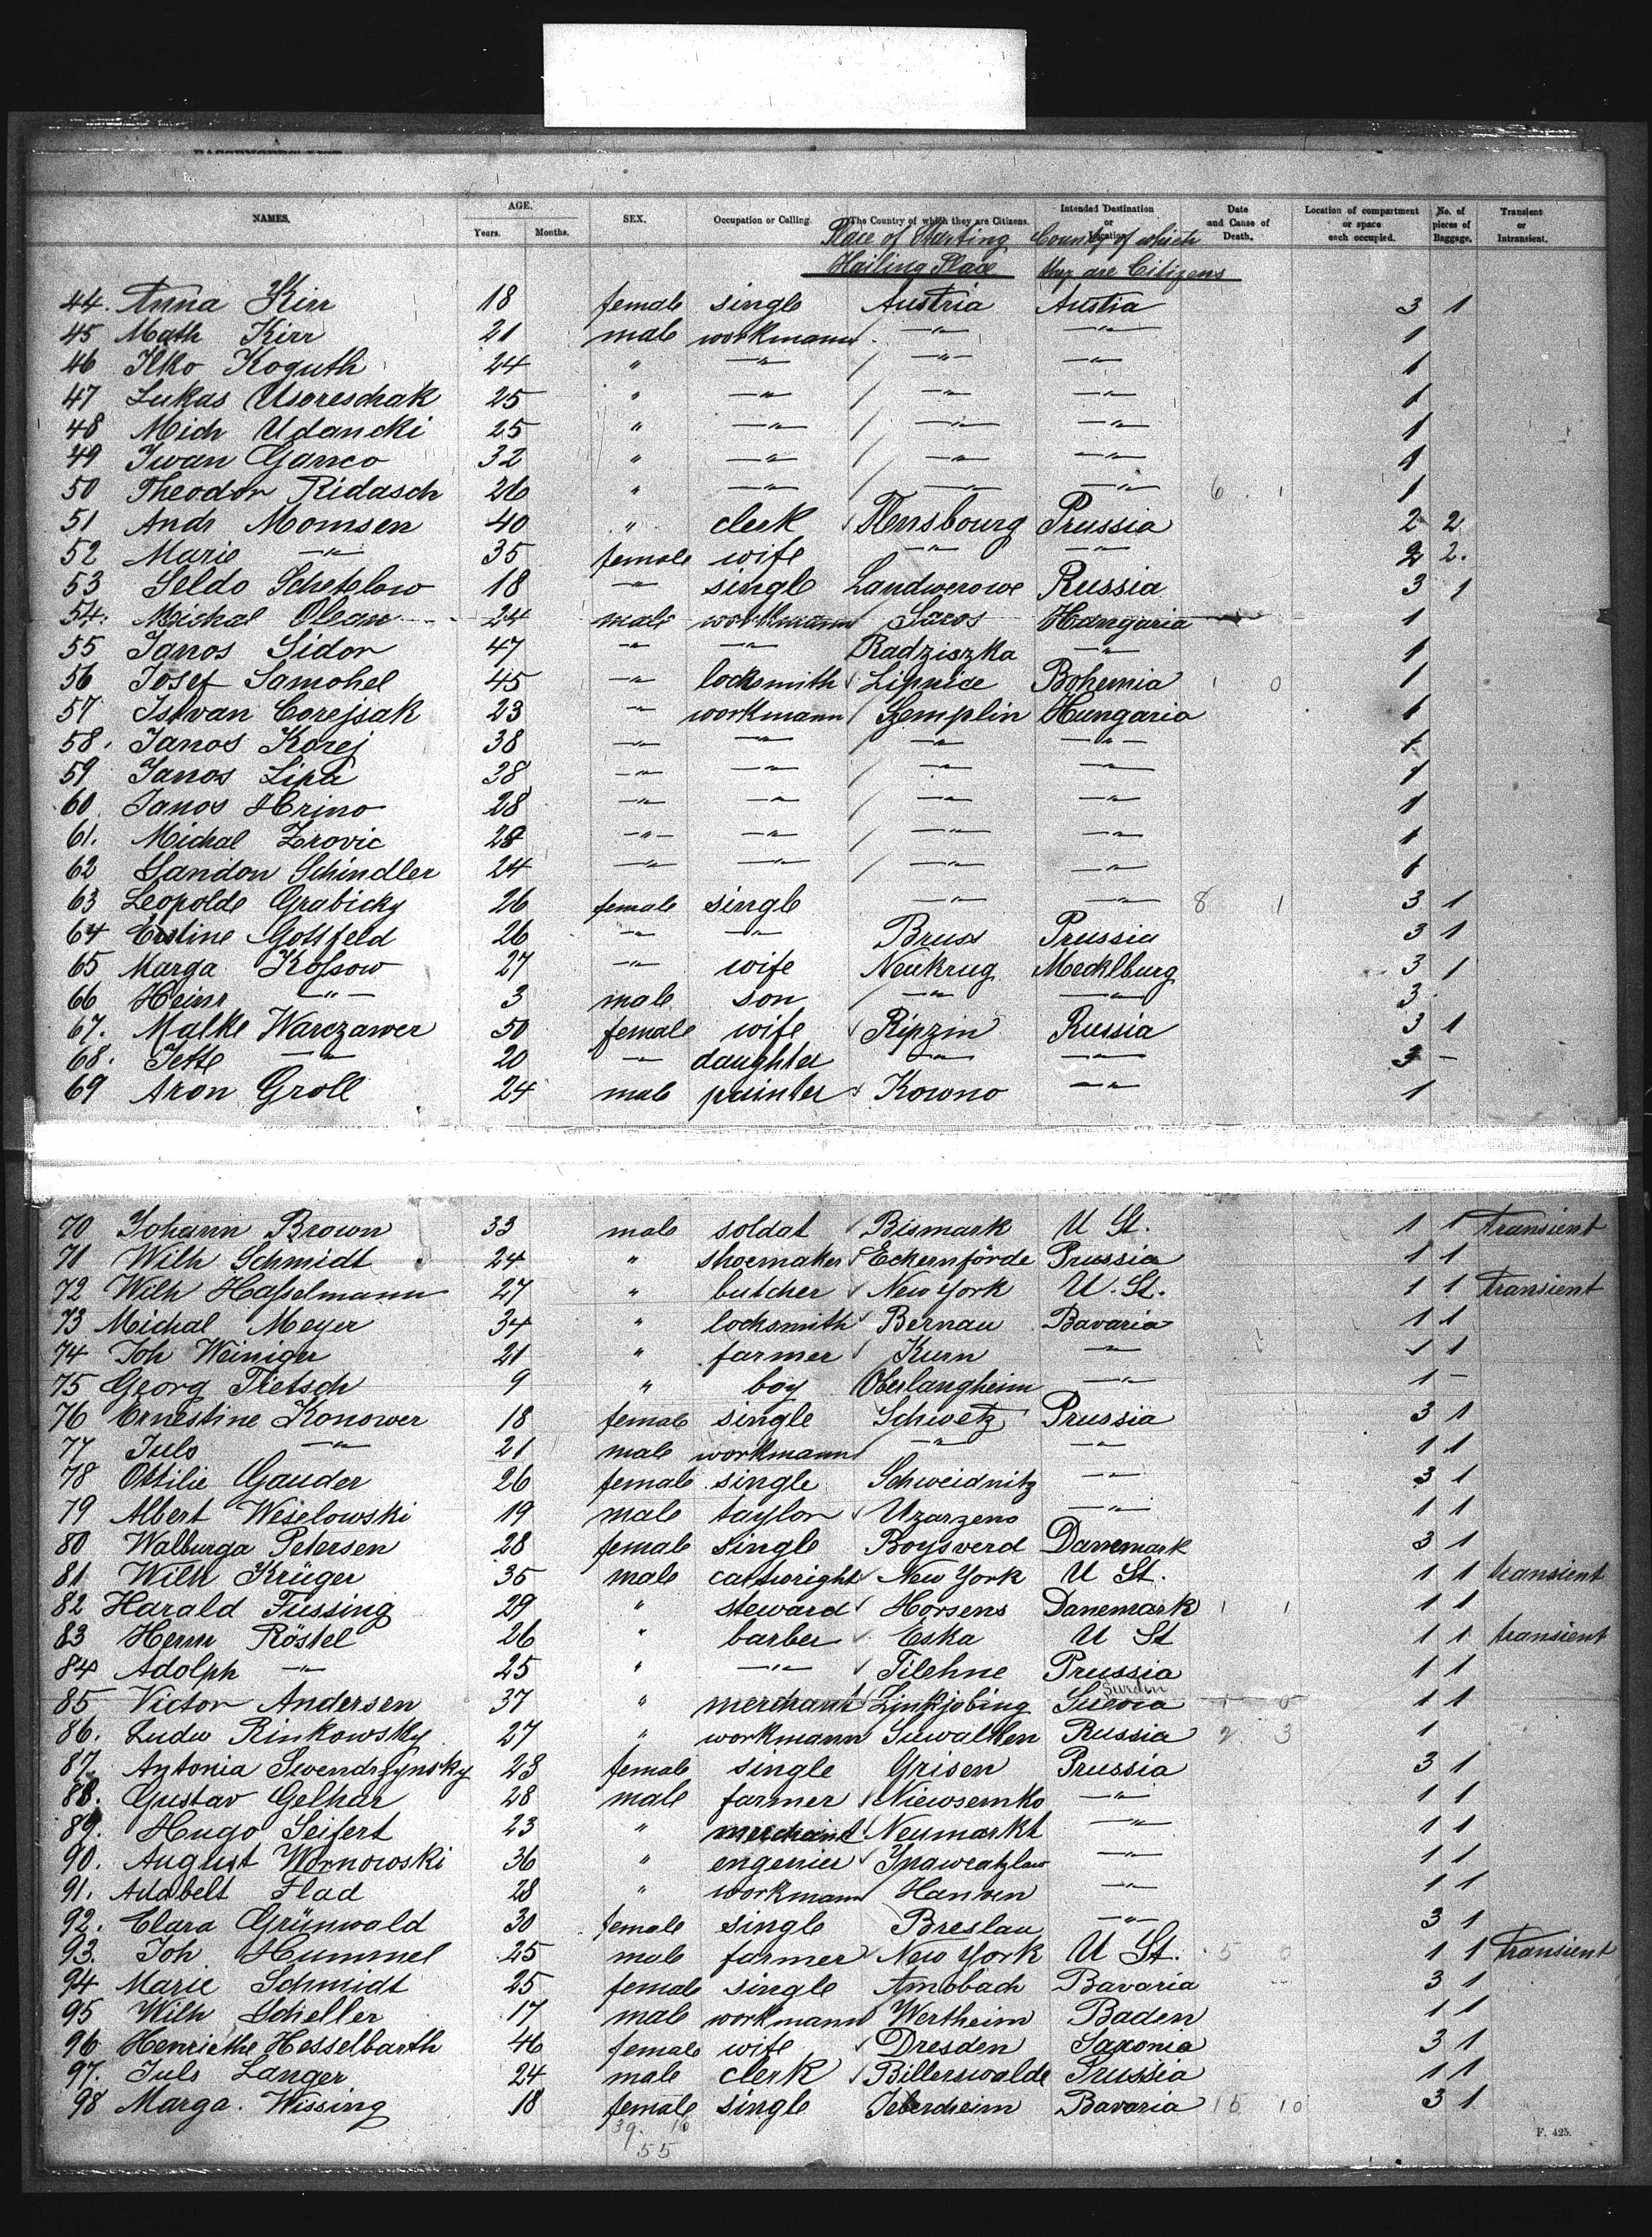 NAMES. AGE. Years. Months. SEX. Occupation or Calling. The Country of which they are Citizens. Intended Destination or Location. Date and Cause of Death. Location of compartment or space each occupied. No. of pieces of Baggage. Transient or Intransient.
Place of Starting County of which
Hailing Place they are Citizens
44. Anna Kirr 18 female single Austria Austia 3 1
45 Math Kirr 21 male workmann —"— —"— 1
46 Ilko Koguth 24 " —"— —"— —"— 1
47 Lukas 25 " —"— —"— —"— 1
48 Mich Udancki 25 " —"— —"— —"— 1
49 Iwan Ganco 32 " —"— —"— —"— 1
50 Theodor Ridasch 26 " —"— —"— —"— 6 1 1
51 Andr Momsen 40 " clerk Flensbourg Prussia 2 2
52 Marie —"— 35 female wife —"— —"— 2 2.
53 Seldo Schetzlow 18 —"— single Landwerowe Russia 3 1
54. Michal Olean 24 male workmann Saros Hungaria 1
55 Janos Sidor 47 —"— —"— Radziszka —"— 1
56 Josef Samohel 45 —"— locksmith Lipnice Bohemia 1 0 1
57 Istvan Corejsak 23 —"— workmann Szemplin Hungaria 1
58. Janos Korej 38 —"— —"— —"— —"— 1
59 Janos Lipa 38 —"— —"— —"— —"— 1
60. Janos Hrino 28 —"— —"— —"— —"— 1
61. Michal Zrovic 28 —"— —"— —"— —"— 1
62 Sandor Schindler 24 —"— —"— —"— —"— 1
63 Leopolde Grabicky 26 female single —"— —"— 8 1 3 1
64 Gottfeld 26 —"— —"— Bruss Prussia 3 1
65 Marga Kossow 27 —"— wife Neukrug Mecklburg 3 1
66 Heinr —"— 3 male son —"— —"— 3
67. Malke Warczawer 50 female wife Ripzin Russia 3 1
68. Jette —"— 20 —"— daughter —"— —"— 3 –
69 Aron Groll 24 male painter Kowno —"— 1
70 Johann Brown 33 male soldat Bismark U St. 1 1 transient
71 Wilh Schmidt 24 " shoemaker Eckernförde Prussia 1 1
72 Wilh Hasselmann 27 " butcher New York U. St. 1 1 transient
73 Michal Meyer 34 " locksmith Bernau Bavaria 1 1
74 Joh Weiniger 21 " farmer Kurn —"— 1 1
75 Georg Tietsch 9 " boy Oberlangheim —"— 1 –
76 Ernestine Konower 18 female single Schwetz Prussia 3 1
77 Juls —"— 21 male workmann —"— —"— 1 1
78 Ottilie Gauder 26 female single Schweidnitz —"— 3 1
79 Albert Weselowski 19 male taylor Uzarzeno —"— 1 1
80 Walburga Petersen 28 female single Boysverd Danemark 3 1
81 Wilh Krüger 35 male cartwright New York U St. 1 1 transient
82 Harald Füssing 29 " steward Horsens Danemark 1 1 1 1
83 Herm Röstel 26 " barber Eska U St 1 1 transient
84 Adolph —"— 25 " —"— Filehne Prussia 1 1
85 Victor Andersen 37 " merchant Linkjobing Suecia 1 1
86. Ludw Rinkowsky 27 " workmann Suwalken Russia 2 3 1
87. Antonia 23 female single Grisen Prussia 3 1
88. Gustav Gelhar 28 male farmer Niewsemko —"— 1 1
89. Hugo Seifert 23 " merchant Neumarkt —"— 1 1
90. August Wornowski 36 " engenier —"— 1 1
91. Adabelt Flad 28 " workmann Hanven —"— 1 1
92. Clara Grünwald 30 female single Breslau —"— 3 1
93. Joh Hummel 25 male farmer New York U St. 5 0 1 1 transient
94 Marie Schmidt 25 female single Amobach Bavaria 3 1
95 Wilh Scheller 17 male workmann Wertheim Baden 1 1
96 Henriethe Hesselbarth 46 female wife Dresden Saxonia 3 1
97. Juls Langer 24 male clerk Billerswalde Prussia 1 1
98 Marga. Wissing 18 female single Bavaria 15 10 3 1
39. 16
55
F. 425.